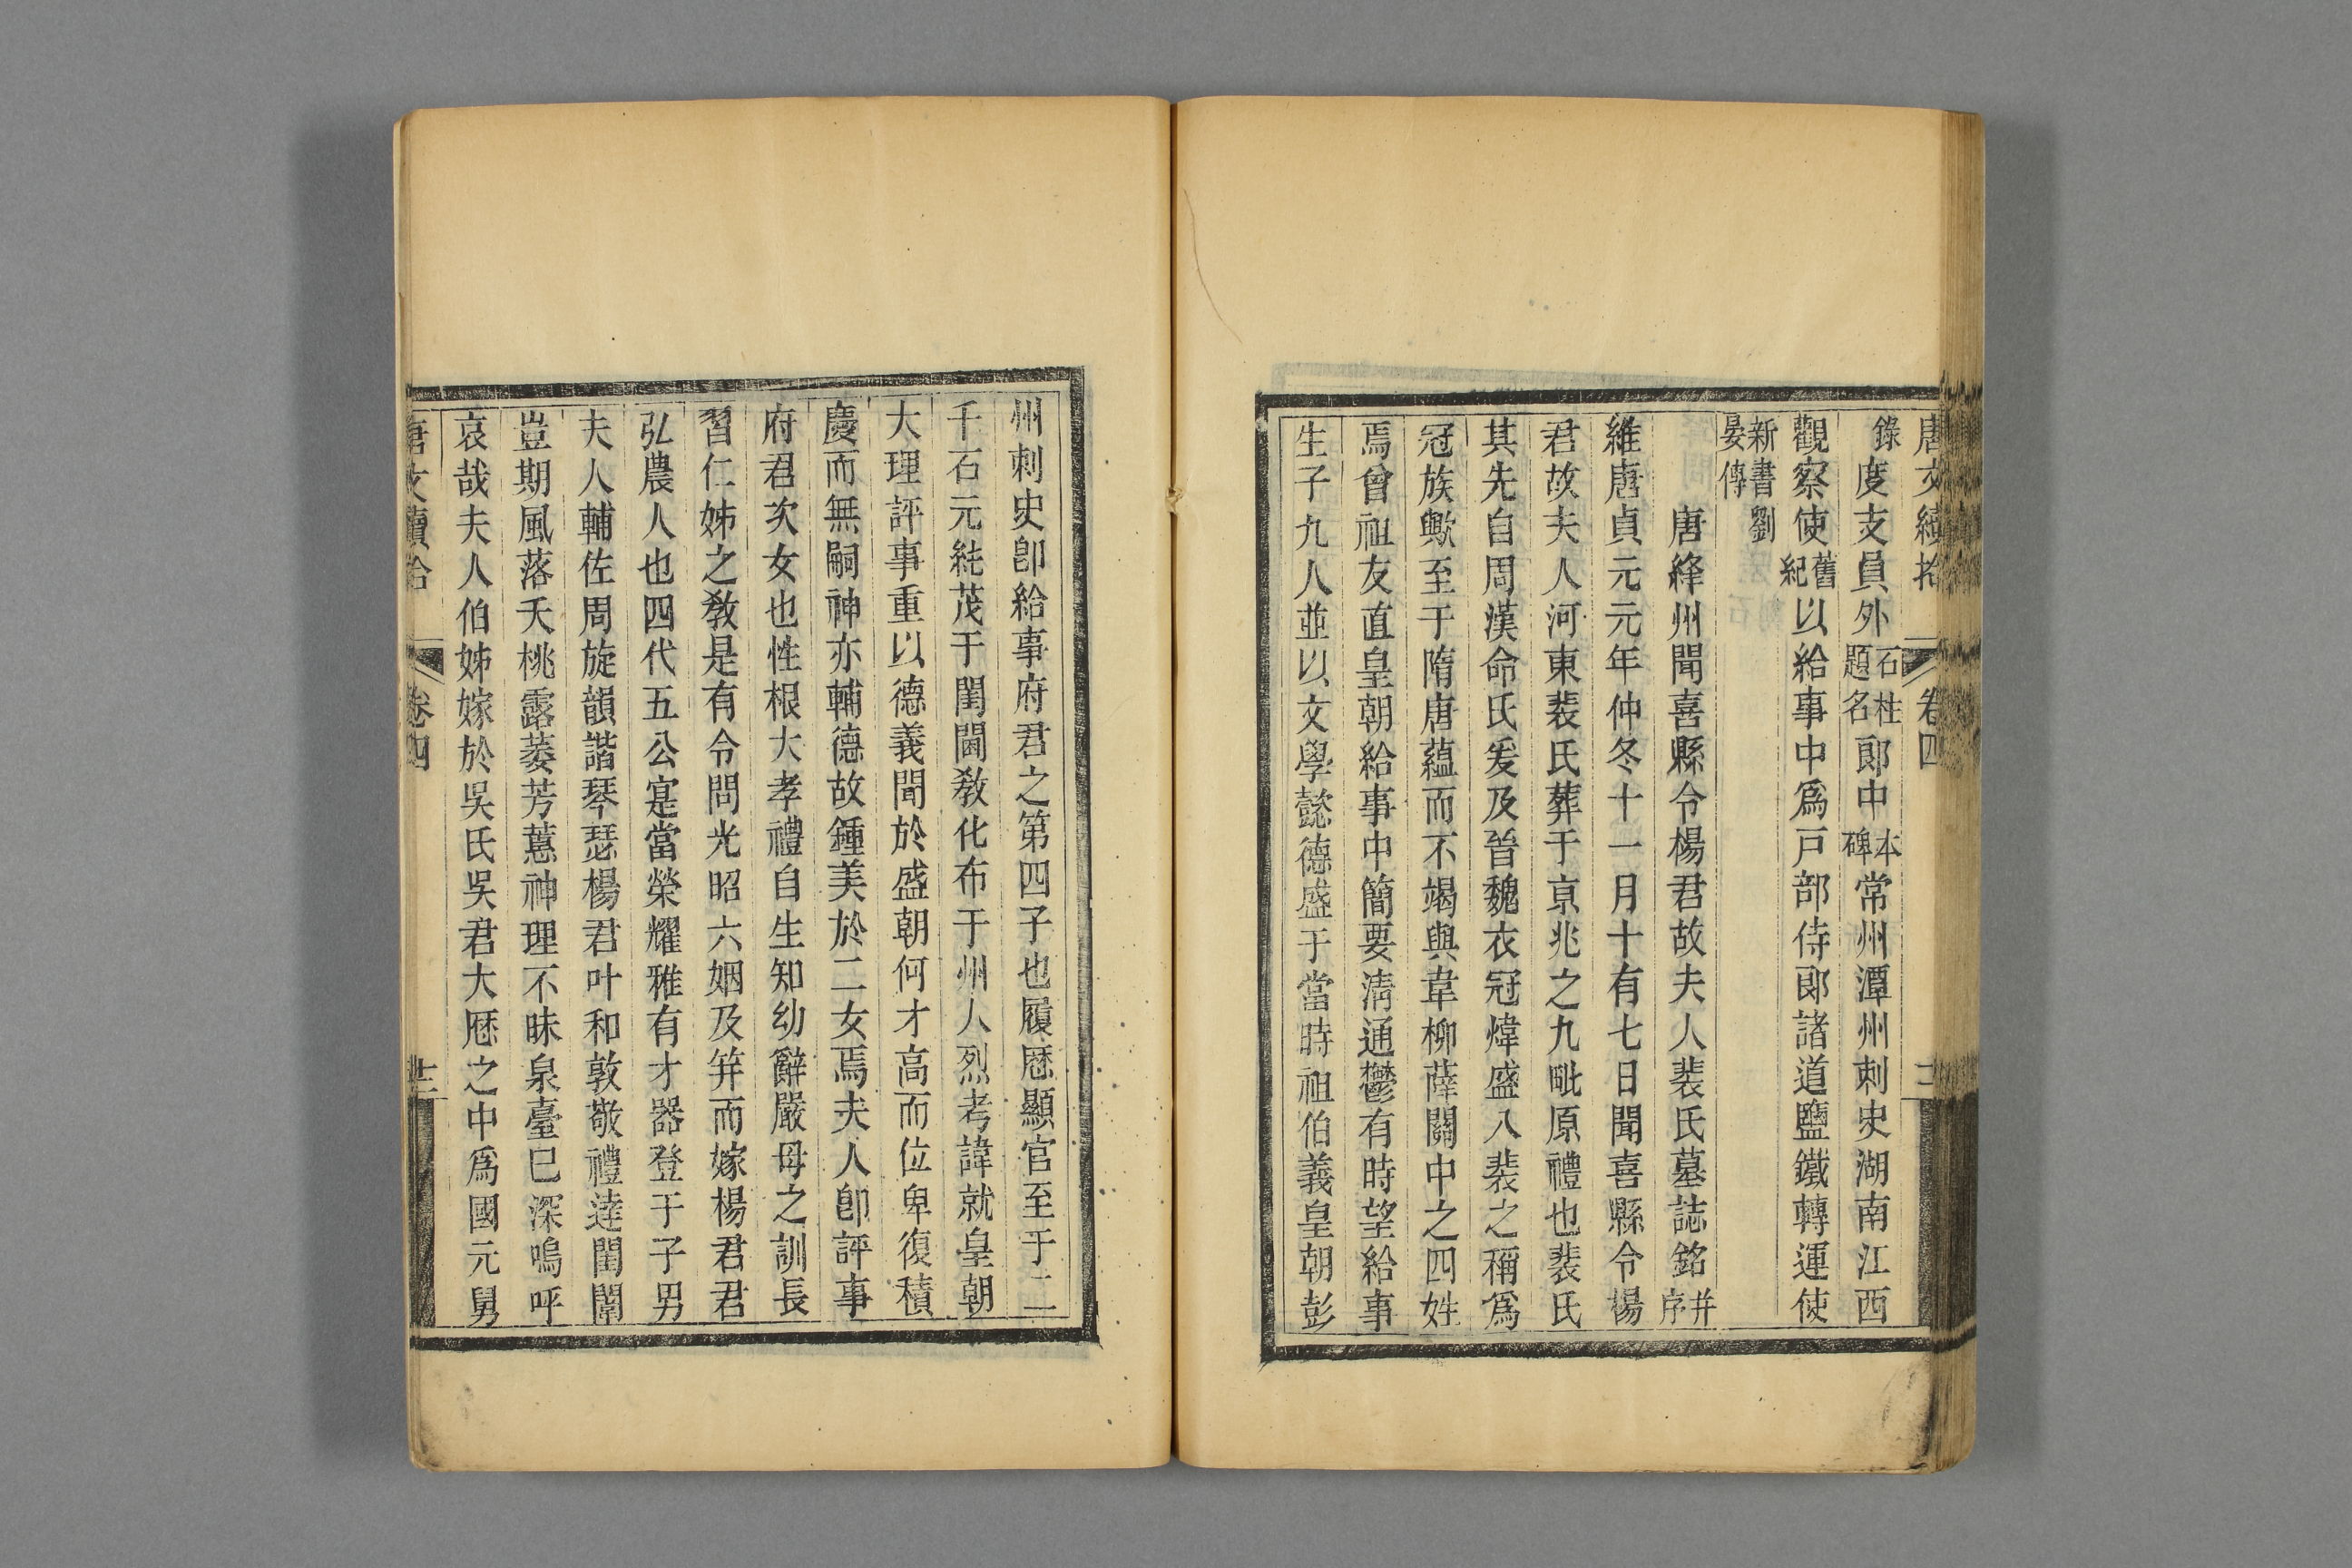 唐文續拾 卷四
錄度支員外石柱題名郎中本碑常州潭州刺史湖南江西
觀察使舊紀以給事中爲戸部侍郎諸道鹽鐵轉運使
新書劉晏傳
唐絳州聞喜縣令楊君故夫人裴氏墓誌銘并序
維唐貞元元年仲冬十一月十有七日聞喜縣令楊
君故夫人河東裴氏葬于京兆之九毗原禮也裴氏
其先自周漢命氏爰及晉魏衣冠煒盛八裴之稱爲
冠族歟至于隋唐蘊而不竭與韋柳薛關中之四姓
焉曾祖友直皇朝給事中簡要淸通鬱有時望給事
生子九人並以文學懿德盛于當時祖伯義皇朝彭
州刺史卽給事府君之第四子也履歷顯官至于二
千石元純茂于閨閫敎化布于州人烈考諱就皇朝
大理評事重以德義聞於盛朝何才高而位卑復積
慶而無嗣神亦輔德故鍾美於二女焉夫人卽評事
府君次女也性根大孝禮自生知幼辭嚴母之訓長
習仁姊之敎是有令問光昭六姻及笄而嫁楊君君
弘農人也四代五公寔當榮耀雅有才器登于子男
夫人輔佐周旋韻諧琴瑟楊君叶和敦敬禮逹閨閫
豈期風落夭桃露萎芳蕙神理不昧泉臺已深嗚呼
哀哉夫人伯姊嫁於吳氏吳君大歷之中爲國元舅
唐文續拾 卷四